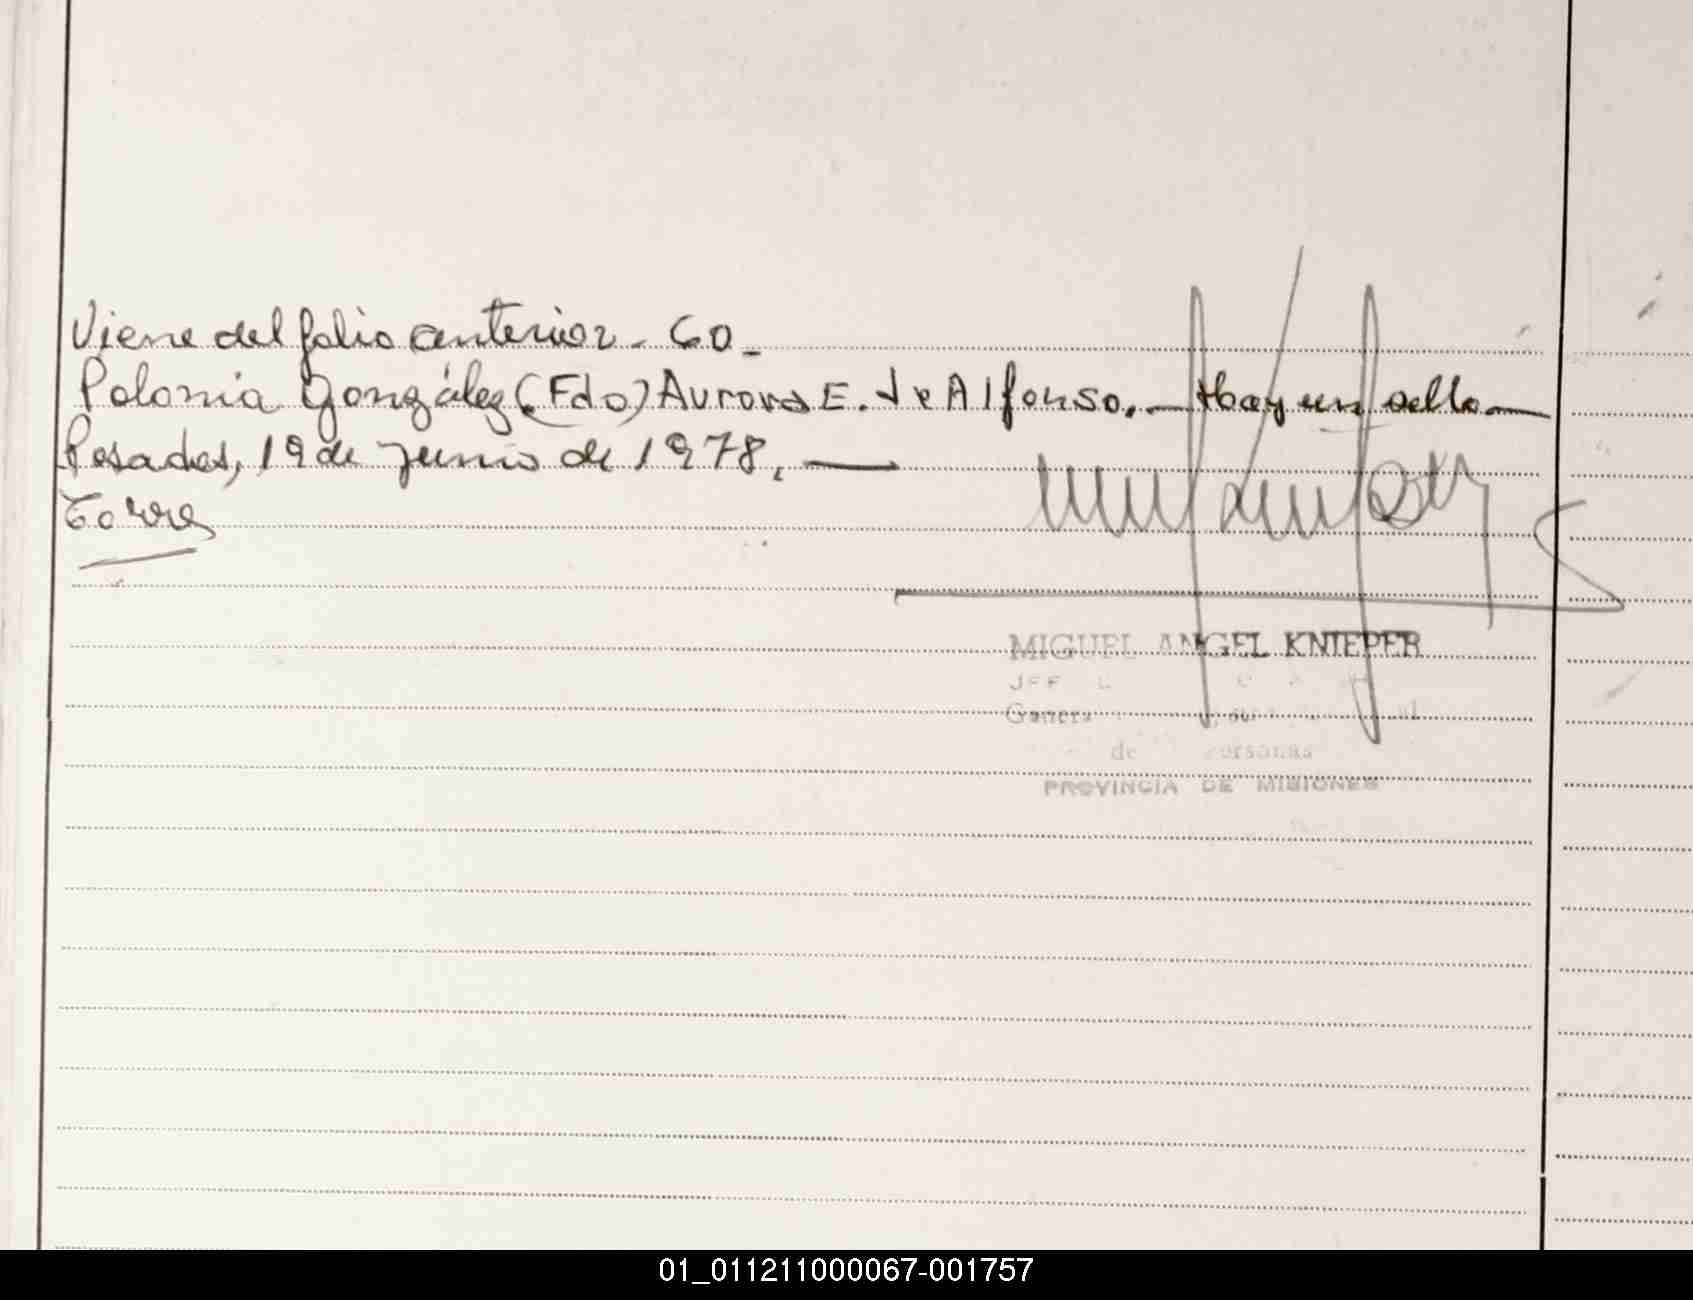 Viene del folio anterior - 60 -
Polonia González (Fdo) Aurora E. de Alfonso. - Hay un sello
Posadas, 19 de junio de 1978.
Torres
MIGUEL ANGEL KNIEPER
JEFE
de Personas
PROVINCIA DE MISIONES
01_011211000067-001757